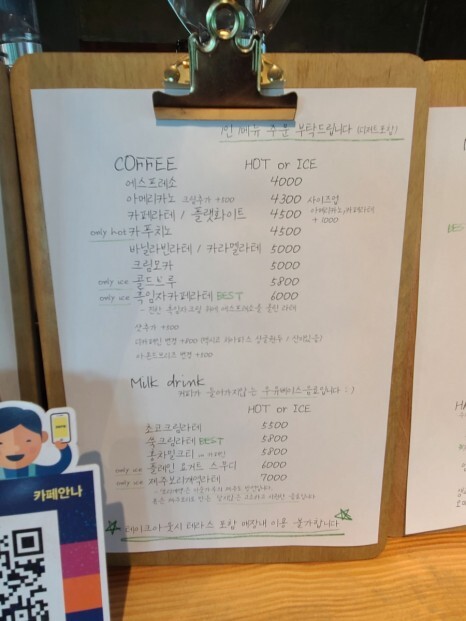 1인 1메뉴 주문 부탁드립니다
COFFEE HOT or ICE
에스프레소 4000
아메리카노 크림추가 +500 4300 사이즈업
카페라떼 / 플랫화이트 4500 아메리카노/카페라떼 + 1000
only hot 카푸치노 4500
바닐라빈라떼 / 카라멜라떼 5000
크림모카 5000
only ice 콜드브루 5800
only ice 흑임자카페라떼 BEST 6000
샷추가 +500
디카페인 변경 +800
아몬드브리즈 변경 +100
Milk drink
커피가 들어가지않는 우유베이스음료입니다 : )
HOT or ICE
초코크림라떼 5500
쑥크림라떼 BEST 5800
홍차밀크티 5800
only ice 플레인 요거트 스무디 6000
only ice 제주보리개역라떼 7000
테이크아웃시 테라스 포함 매장내 이용 불가합니다
카페안나